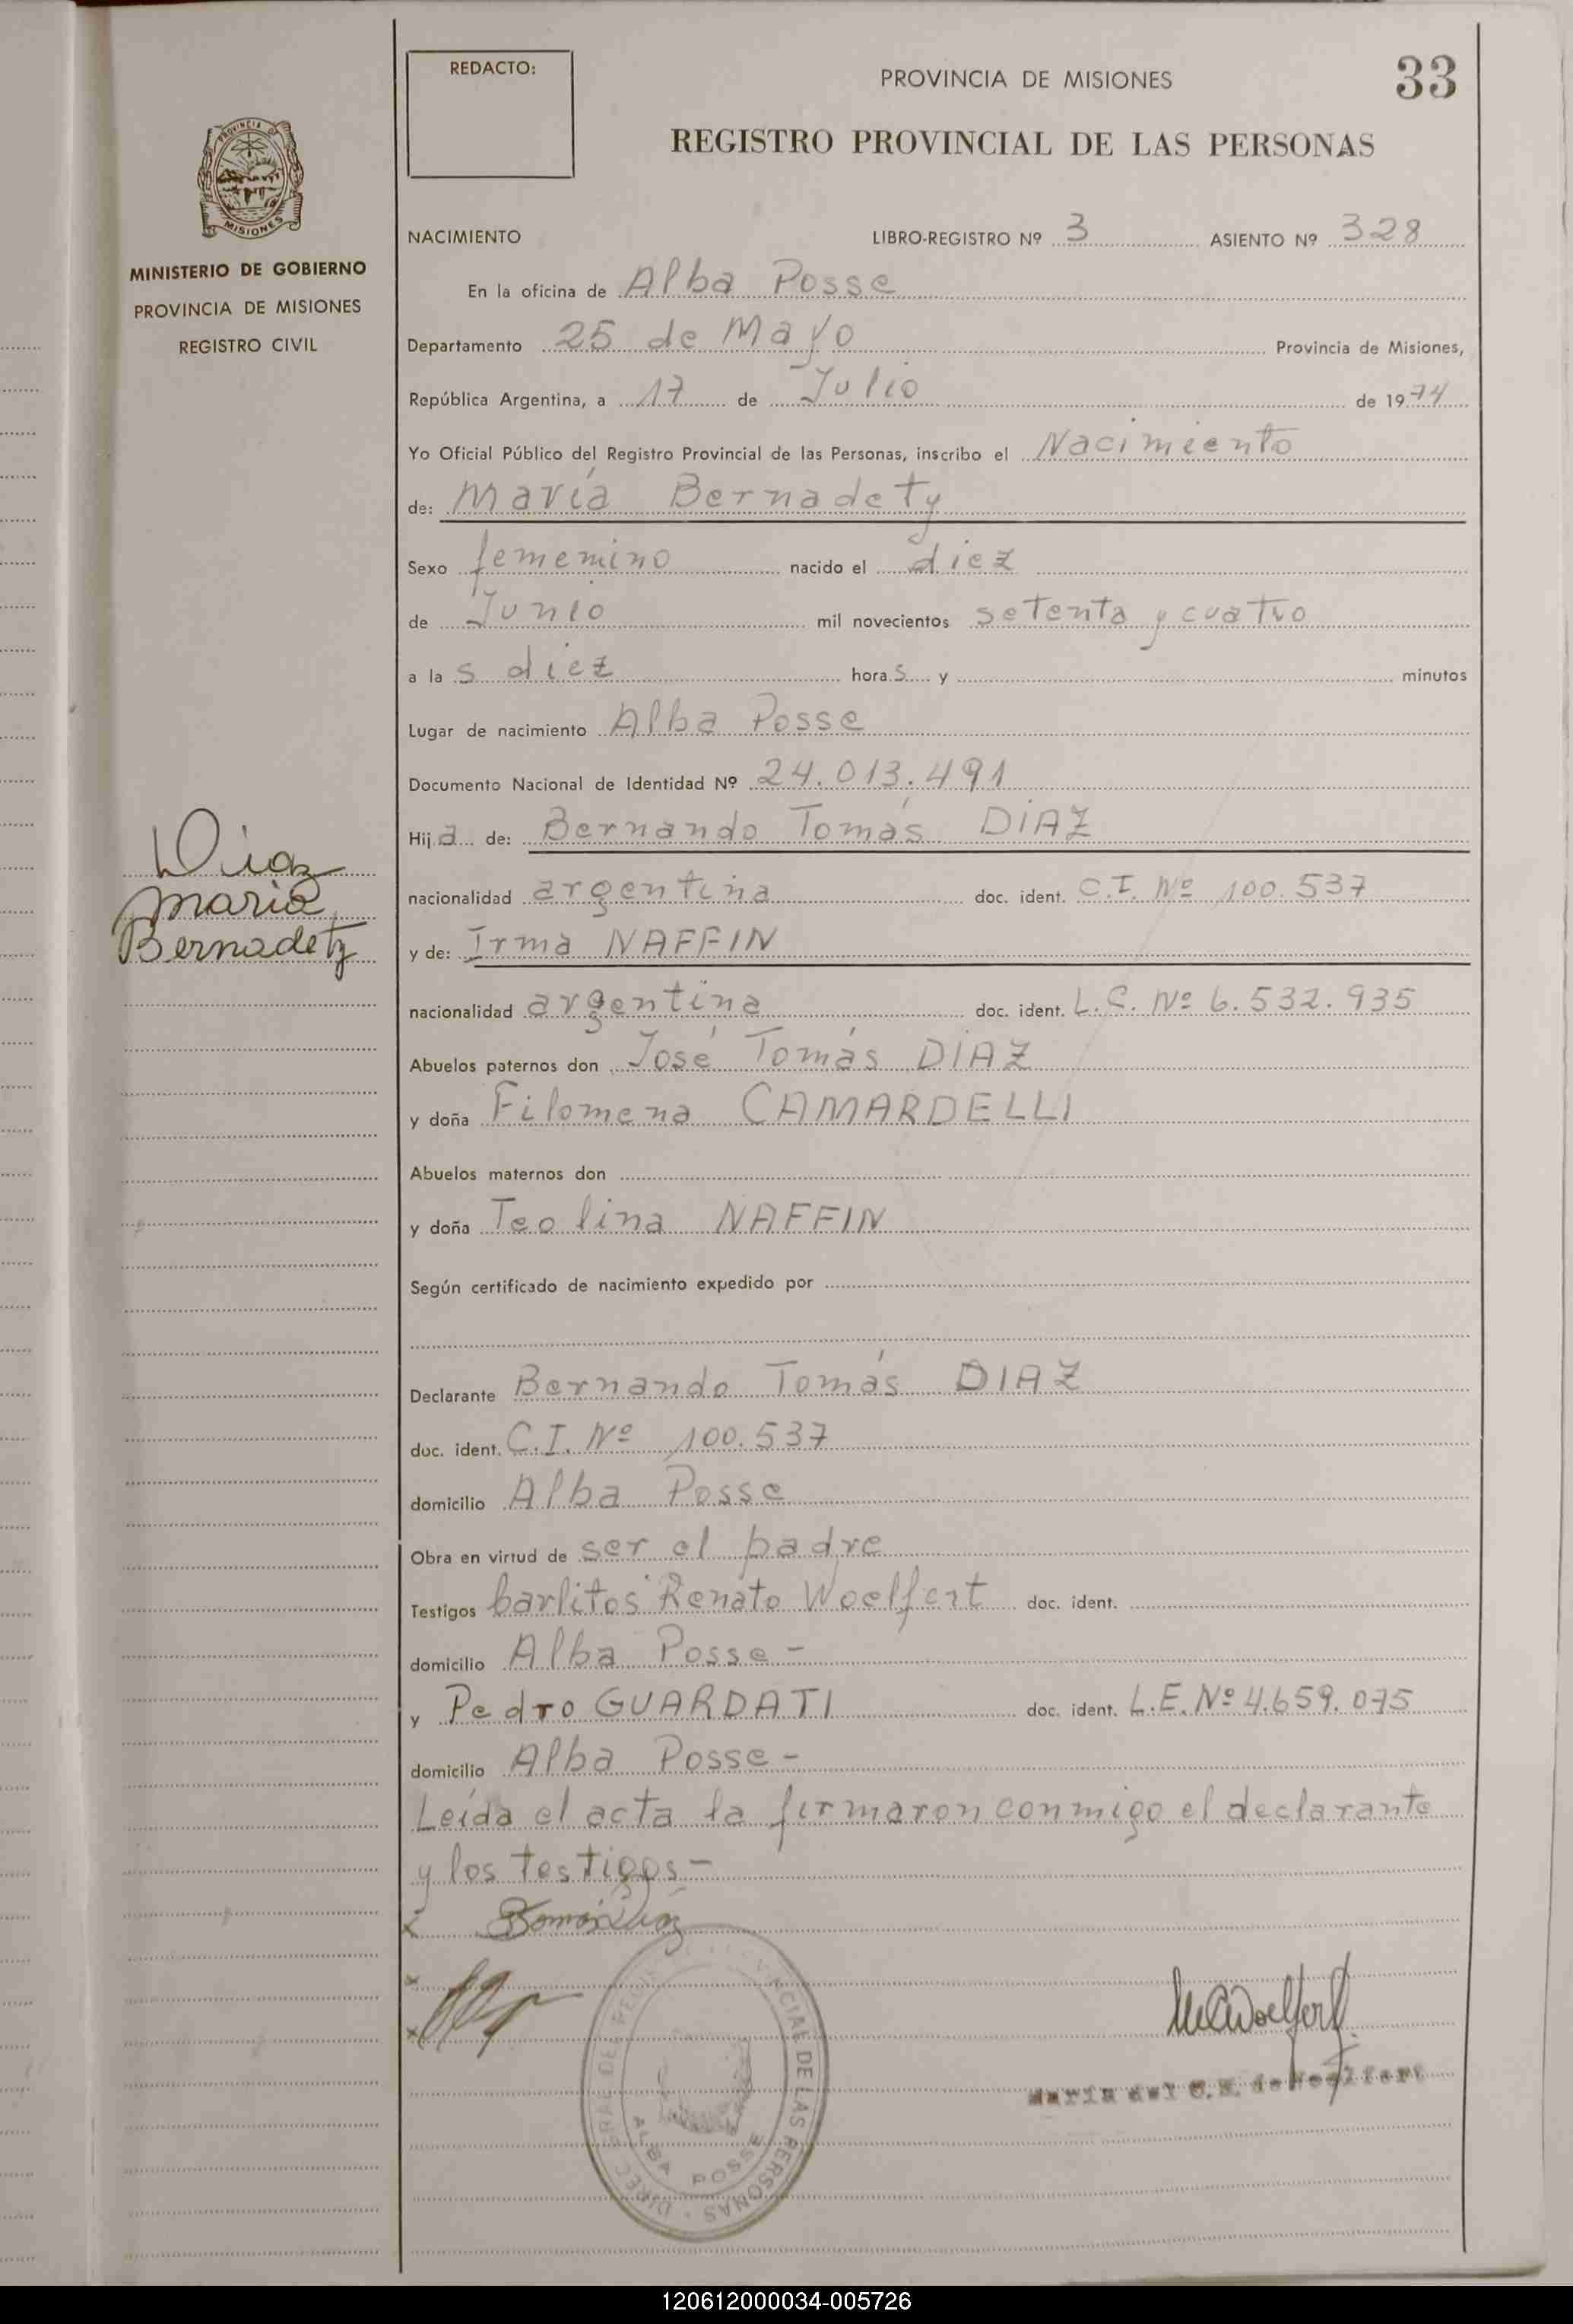 REDACTO:
PROVINCIA DE MISIONES
33
REGISTRO PROVINCIAL DE LAS PERSONAS
PROVINCIA DE MISIONES
MINISTERIO DE GOBIERNO
PROVINCIA DE MISIONES
REGISTRO CIVIL
NACIMIENTO LIBRO-REGISTRO Nº 3 ASIENTO Nº 328
En la oficina de Alba Posse
Departamento 25 de Mayo Provincia de Misiones,
República Argentina, a 17 de Julio de 1974
Yo Oficial Público del Registro Provincial de las Personas, inscribo el Nacimiento
de: María Bernadety
Sexo femenino nacido el diez
de Junio mil novecientos setenta y cuatro
a las diez horas y minutos
Lugar de nacimiento Alba Posse
Documento Nacional de Identidad Nº 24.013.491
Hija de: Bernando Tomás DIAZ
Diaz
Maria
Bernadety
nacionalidad argentina doc. ident. C.I. Nº 100.537
y de: Irma NAFFIN
nacionalidad argentina doc. ident. L.C. Nº 6.532.935
Abuelos paternos don José Tomás DIAZ
y doña Filomena CAMARDELLI
Abuelos maternos don
y doña Teolina NAFFIN
Según certificado de nacimiento expedido por
Declarante Bernando Tomás DIAZ
doc. ident. C.I. Nº 100.537
domicilio Alba Posse
Obra en virtud de ser el padre
Testigos Carlitos Renato Woelfert doc. ident.
domicilio Alba Posse-
y Pedro GUARDATI doc. ident. L.E. Nº 4.659.075
domicilio Alba Posse-
Leída el acta la firmaron conmigo el declarante
y los testigos-
DE LAS PERSONAS
ALBA POSSE
María del C. de Woelfert
120612000034-005726